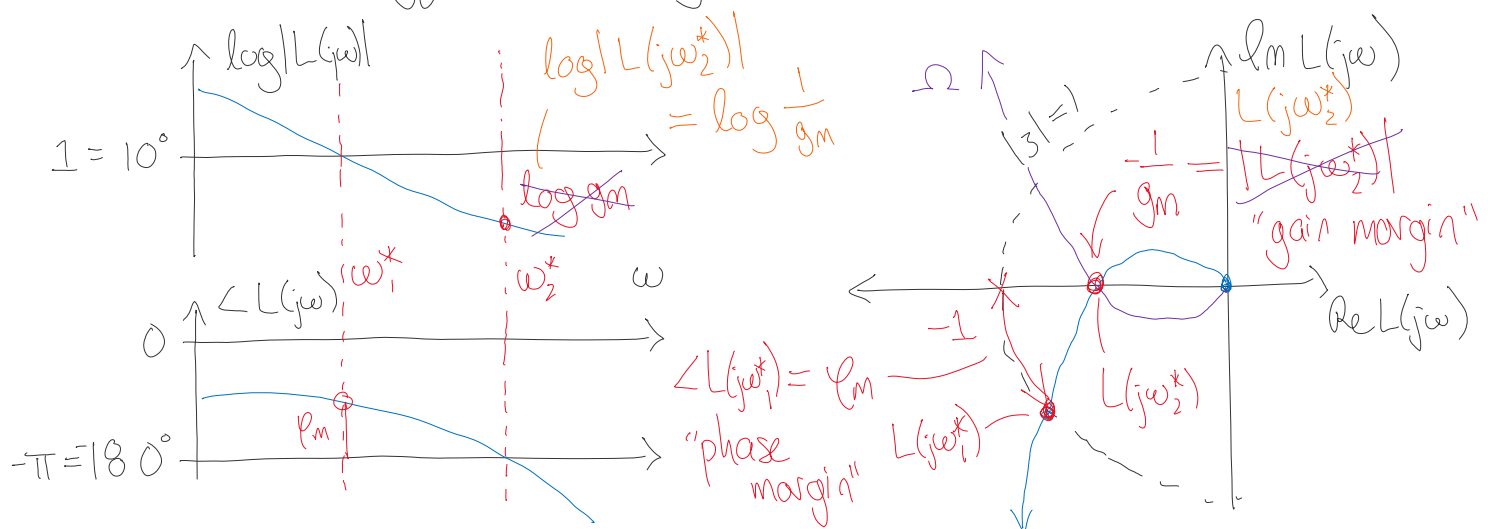 log|L(jω)|
log|L(jω₂*)|
= log 1/gm
1 = 10°
log gm
ω₁*
ω₂*
ω
∠L(jω)
0
φm
-π = 180°
∠L(jω₁*) = φm
"phase
margin"
Im L(jω)
Ω
|z|=1
L(jω₂*)
-1/gm = |L(jω₂*)|
"gain margin"
-1
Re L(jω)
L(jω₂*)
L(jω₁*)